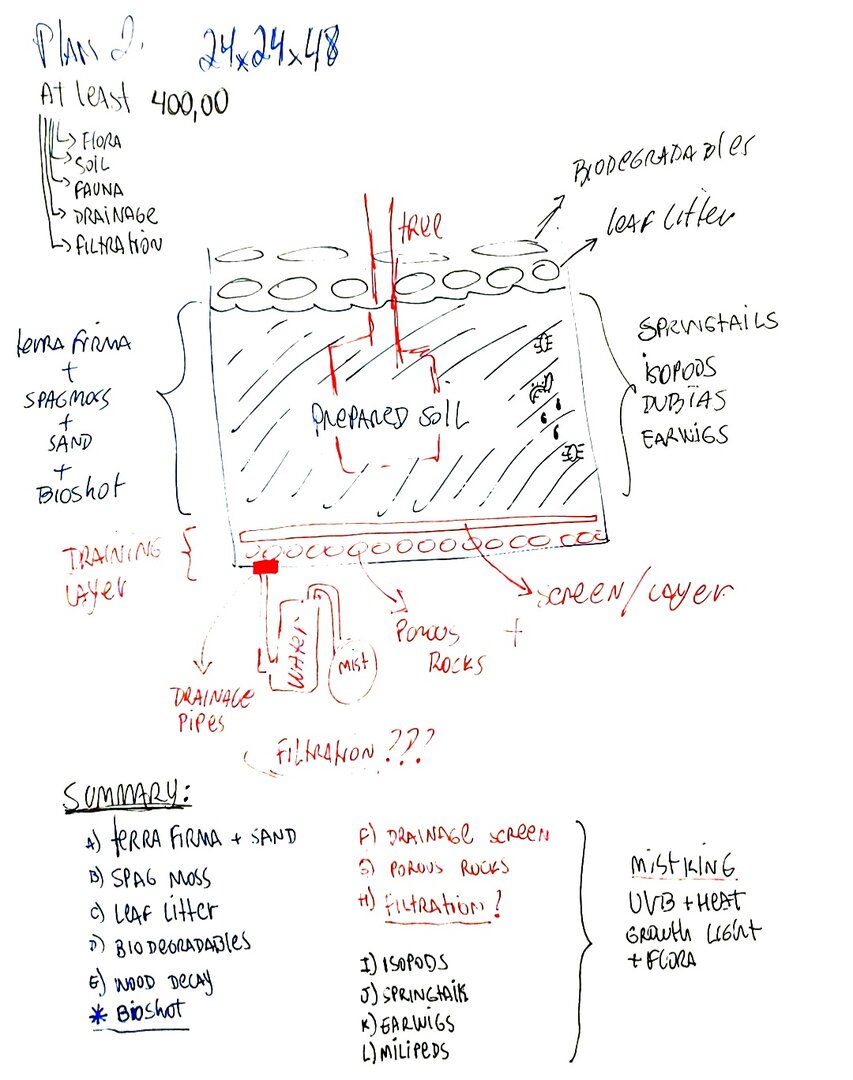 PLAN 2. 24x24x48
At least 400,00
FLORA
SOIL
FAUNA
DRAINAGE
FILTRATION
BIODEGRADABLES
LEAF LITTER
tree
terra FIRMA
+
SPAGMOSS
+
SAND
+
BIOSHOT
PREPARED SOIL
SPRINGTAILS
ISOPODS
DUBIAS
EARWIGS
TRAINING
LAYER
SCREEN/LAYER
+
POROUS
ROCKS
WATER
MIST
DRAINAGE
PIPES
FILTRATION???
SUMMARY:
A) TERRA FIRMA + SAND
B) SPAG MOSS
C) LEAF LITTER
D) BIODEGRADABLES
E) WOOD DECAY
* BIOSHOT
F) DRAINAGE SCREEN
G) POROUS ROCKS
H) FILTRATION?
I) ISOPODS
J) SPRINGTAILS
K) EARWIGS
L) MILIPEDS
MISTKING
UVB + HEAT
GROWTH LIGHT
+ FLORA